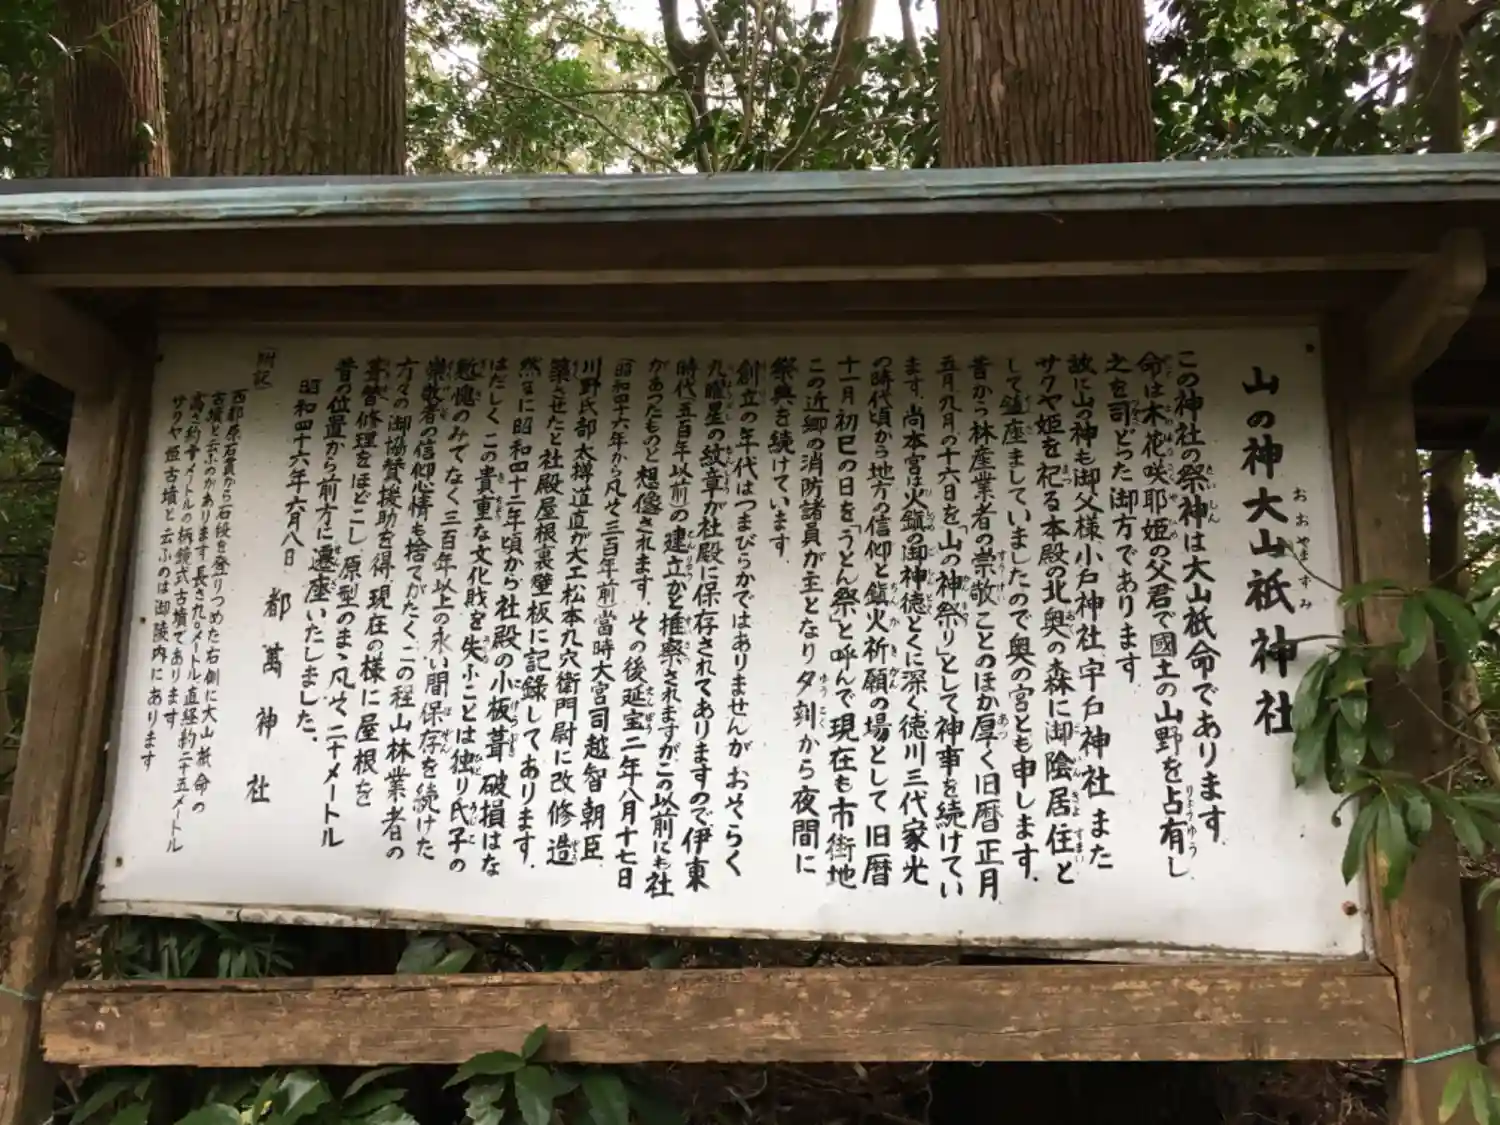 山の神大山祇神社
おおやますみ
この神社の祭神は大山祇命であります。
命は木花咲耶姫の父君で國土の山野を占有し
之を司どった御方であります
故に山の神も御父様小戸神社宇戸神社また
サクヤ姫を祀る本殿の北奥の森に御陰居住と
して鎮座ましていましたので奥の宮とも申します。
昔から林産業者の崇敬ことのほか厚く旧暦正月
五月九月の十六日を「山の神祭り」として神事を続けてい
ます。尚本宮は火鎮の御神徳とくに深く徳川三代家光
の時代頃から地方の信仰と鎮火祈願の場として旧暦
十一月初巳の日を「うどん祭」と呼んで現在も市街地
この近郷の消防諸員が主となり夕刻から夜間に
祭典を続けています。
創立の年代はつまびらかではありませんがおそらく
九曜星の紋章が社殿に保存されてありますので伊東
時代五百年以前の建立かと推察されますがこの以前にも社
があったものと想像されます。その後延宝二年八月十七日
(昭和四十六年から凡そ三百年前)當時大宮司越智朝臣
川野氏部太樽道直が大工松本九穴衛門尉に改修造
築させたと社殿屋根裏壁板に記録してあります。
然るに昭和四十二年頃から社殿の小板葺破損はな
はだしくこの貴重な文化財を失ふことは独り氏子の
慙愧のみでなく三百年以上の永い間保存を続けた
崇敬者の信仰心情も捨てがたくこの程山林業者の
方々の御協賛援助を得現在の様に屋根を
葺替修理をほどこし原型のまゝ凡そ二十メートル
昔の位置から前方に遷座いたしました。
昭和四十六年六月八日
都萬神社
「附記」
西都原石貫から石段を登りつめた右側に大山祇命の
古墳と云ふのがあります長さ約九〇メートル直経約二十五メートル
高さ約十メートルの柄鏡式古墳であります
サクヤ姫古墳と云ふのは御陵内にあります